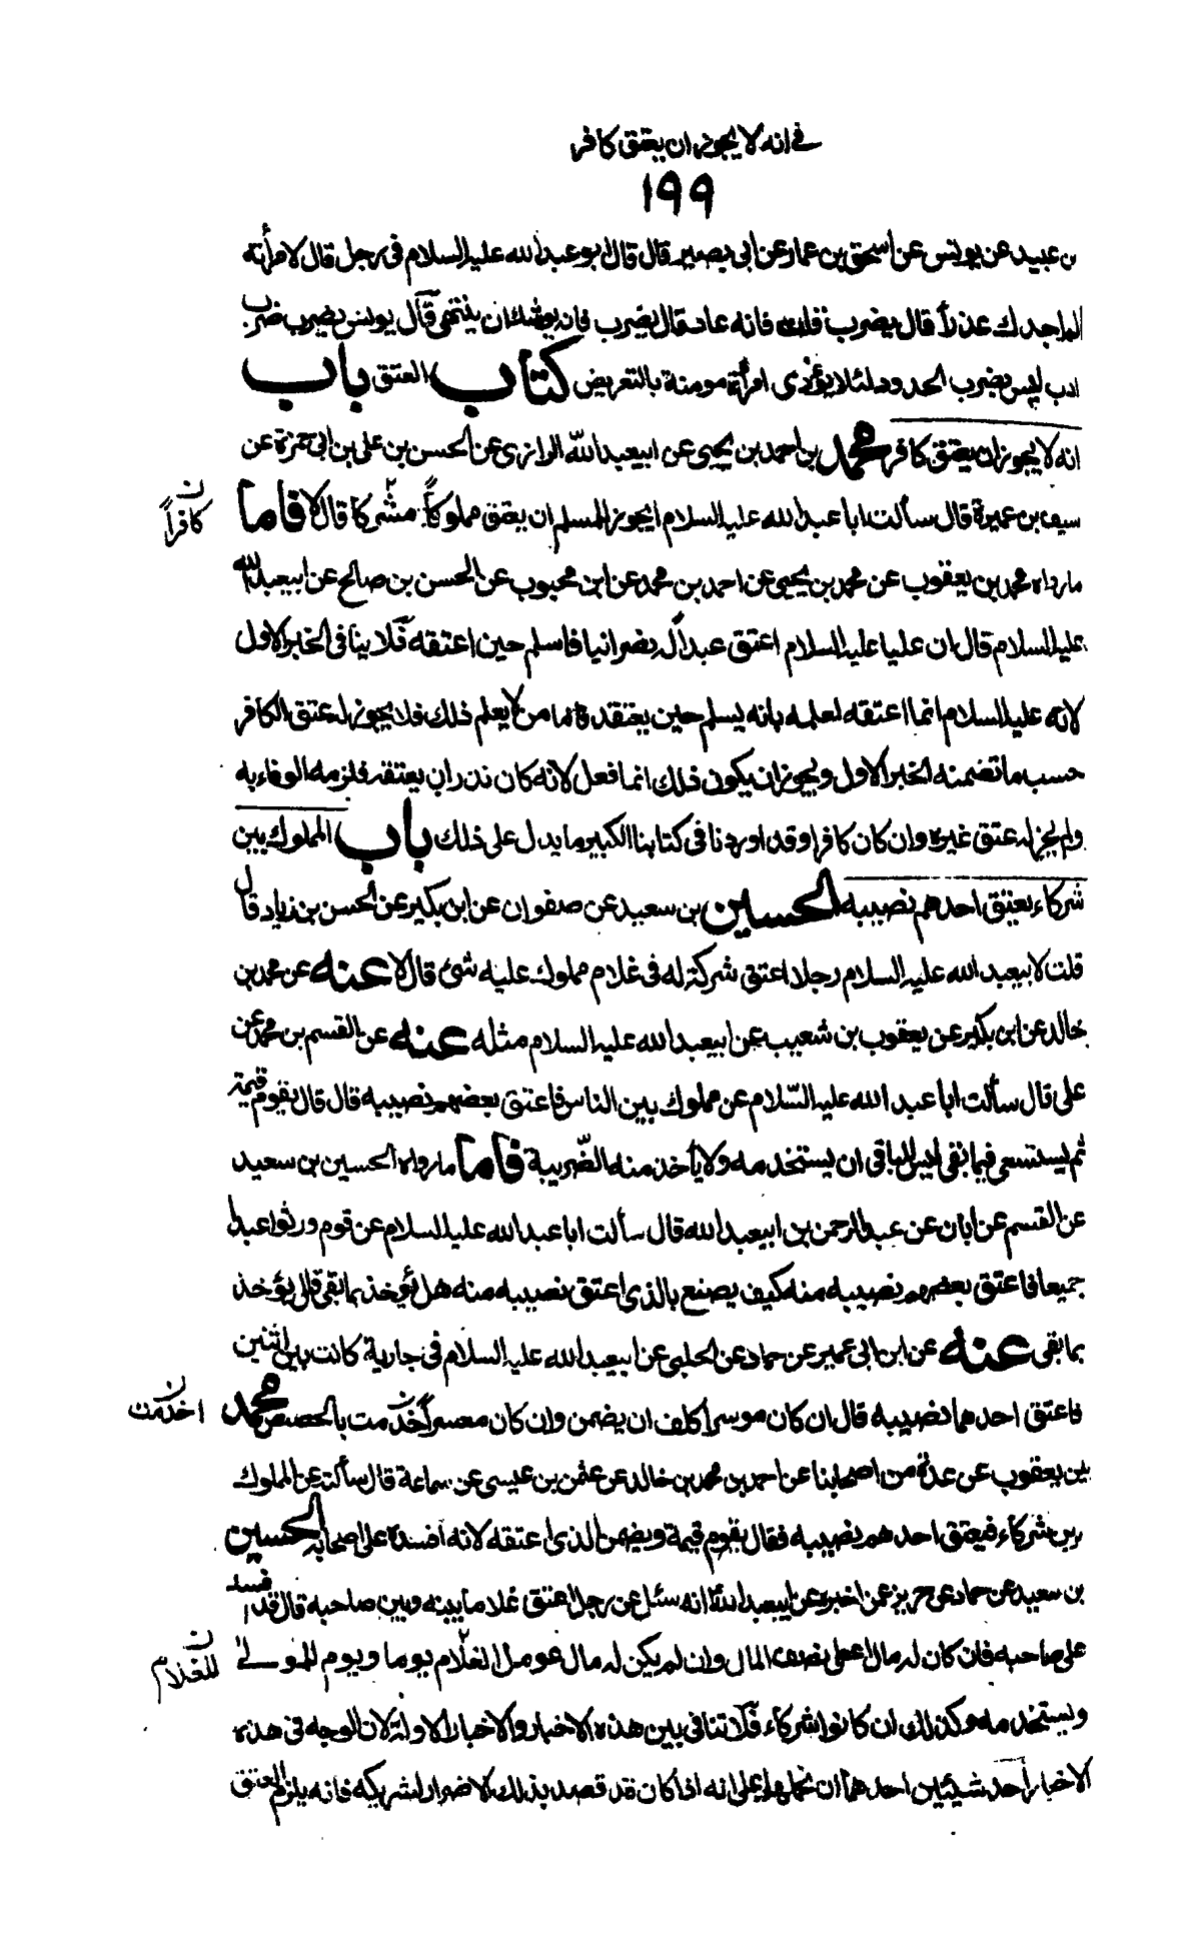 في انه لا يجوز ان يعتق كافر
١٩٩
بن عبيد عن يونس عن اسحق بن عمار عن ابي بصير قال قال ابو عبد الله عليه السلام في رجل قال لامرأته
لم اجدك عذرآ قال يضرب قلت فانه عاد قال يضرب فانه يوشك ان ينتهى قال يونس يضرب ضرب
ادب ليس يضرب الحدود لئلا يؤذى امرأة مومنة بالتعريض كتاب العتق باب
انه لا يجوز ان يعتق كافر محمد بن احمد بن يحيى عن ابيعبد الله الرازى عن الحسن بن على بن ابى حمزة عن
سيف بن عميرة قال سألت ابا عبد الله عليه السلام ايجوز للمسلم ان يعتق مملوكاً مشركا قال لا فاما
كافراً ن
ما رواه محمد بن يعقوب عن محمد بن يحيى عن احمد بن محمد عن ابن محبوب عن الحسن بن صالح عن ابيعبد الله
عليه السلام قال ان عليا عليه السلام اعتق عبداً له نصرانيا فاسلم حين اعتقه فلا ينافى الخبر الاول
لانه عليه السلام انما اعتقه لعلمه بانه يسلم حين يعتقه فاما من لا يعلم ذلك فلا يجوز له عتق الكافر
حسب ما تضمنه الخبر الاول ويجوز ان يكون ذلك انما فعل لانه كان نذر ان يعتقه فلزمه الوفاء به
ولم يجز له عتق غيره وان كان كافرا وقد اوردنا فى كتابنا الكبير ما يدل على ذلك باب المملوك بين
شركاء يعتق احدهم نصيبه الحسين بن سعيد عن صفوان عن ابن بكير عن الحسن بن زياد قال
قلت لابيعبد الله عليه السلام رجل اعتق شركة له فى غلام مملوك عليه شئ قال لا عنه عن محمد بن
خالد عن ابن بكير عن يعقوب بن شعيب عن ابيعبد الله عليه السلام مثله عنه عن القسم بن محمد عن
على قال سألت ابا عبد الله عليه السّلام عن مملوك بين الناس فاعتق بعضهم نصيبه قال قال يقوم قيمة
ثم يستسعى فيما بقى ليس للباقى ان يستخدمه ولا يأخذ منه الضّريبة فاما ما رواه الحسين بن سعيد
عن القسم عن ابان عن عبد الرحمن بن ابيعبد الله قال سألت ابا عبد الله عليه السلام عن قوم ورثوا عبدا
جميعا فاعتق بعضهم نصيبه منه كيف يصنع بالذى اعتق نصيبه منه هل يؤخذ بما بقى قال يؤخذ
بما بقى عنه عن ابن ابى عمير عن حماد عن الحلبى عن ابيعبد الله عليه السلام فى جارية كانت بين اثنين
فاعتق احدهما نصيبه قال ان كان موسرا كلف ان يضمن وان كان معسراً خدمت بالحصص محمد
اخدمت ن
بن يعقوب عن عدة من اصحابنا عن احمد بن محمد بن خالد عن عثمن بن عيسى عن سماعة قال سألته عن المملوك
بين شركاء فيعتق احدهم نصيبه فقال يقوم قيمة ويضمن الذى اعتقه لانه افسده على اصحابه الحسين
بن سعيد عن حماد عن حريز عمن اخبره عن ابيعبد الله انه سئل عن رجل اعتق غلاما بينه وبين صاحبه قال قد افسد
على صاحبه فان كان له مال اعطى نصف المال وان لم يكن له مال عومل الغلام يوما ويوم للمولى
للغلام ن
ويستخدمه وكذلك ان كانوا شركاء فلا تنافى بين هذه الاخبار والاخبار الاولة لان الوجه فى هذه
الاخبار احد شيئين احدهما ان نحملها على انه اذا كان قد قصد بذلك الاضرار لشريكه فانه يلزم العتق